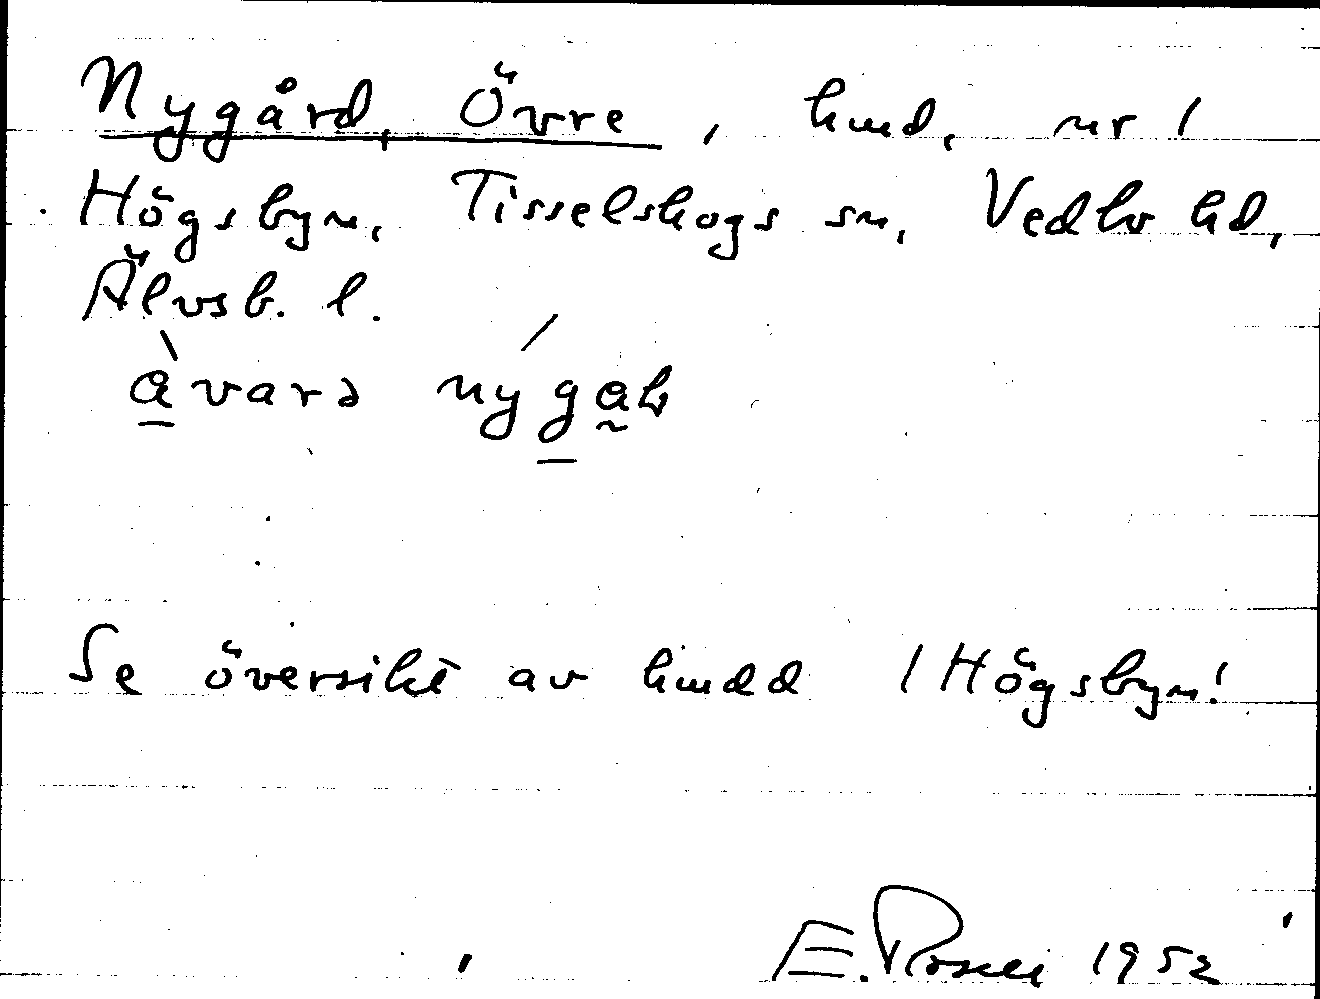 Nygård, Övre, hmd, nr 1
Högsbyn, Tisselskogs sn, Vedbo hd,
Älvsb. l.
àvarə nýgaḷ
Se översikt av hmdd 1 Högsbyn!
E. 1952